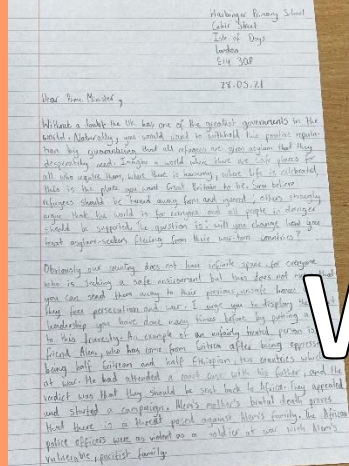 Harbinger Primary School
Cahir Street
Isle of Dogs
London
E14 3QP
28.05.21
Dear Prime Minister,
Without a doubt the UK has one of the greatest governments in the
world. Naturally, you would want to withhold this positive reputa-
tion by guaranteeing that all refugees are given asylum that they
desperately need. Imagine a world where there are safe places for
all who require them, where there is harmony, where life is celebrated,
this is the place you want Great Britain to be. Some believe
refugees should be turned away from and ignored, others strongly
argue that the world is for everyone and all people in danger
should be supported. The question is: will you change how you
treat asylum-seekers fleeing from their war-torn countries?
Obviously our country does not have infinite space for everyone
who is seeking a safe environment but this does not mean that
you can send them away to their perilous, unsafe homes
they face persecution and war. I urge you to display the
leadership you have done many times before by putting a
to this travesty. An example of an unfairly treated person is
friend Alem, who has come from Eritrea after being oppress
being half Eritrean and half Ethiopian, two countries which
at war. He had attended a court case with his father, and the
verdict was that they should be sent back to Africa. They appealed
and started a campaign. Alem's mother's brutal death proves
that there is a threat posed against Alem's family. The African
police officers were as violent as a soldier at war with Alem's
vulnerable, pacifist family.